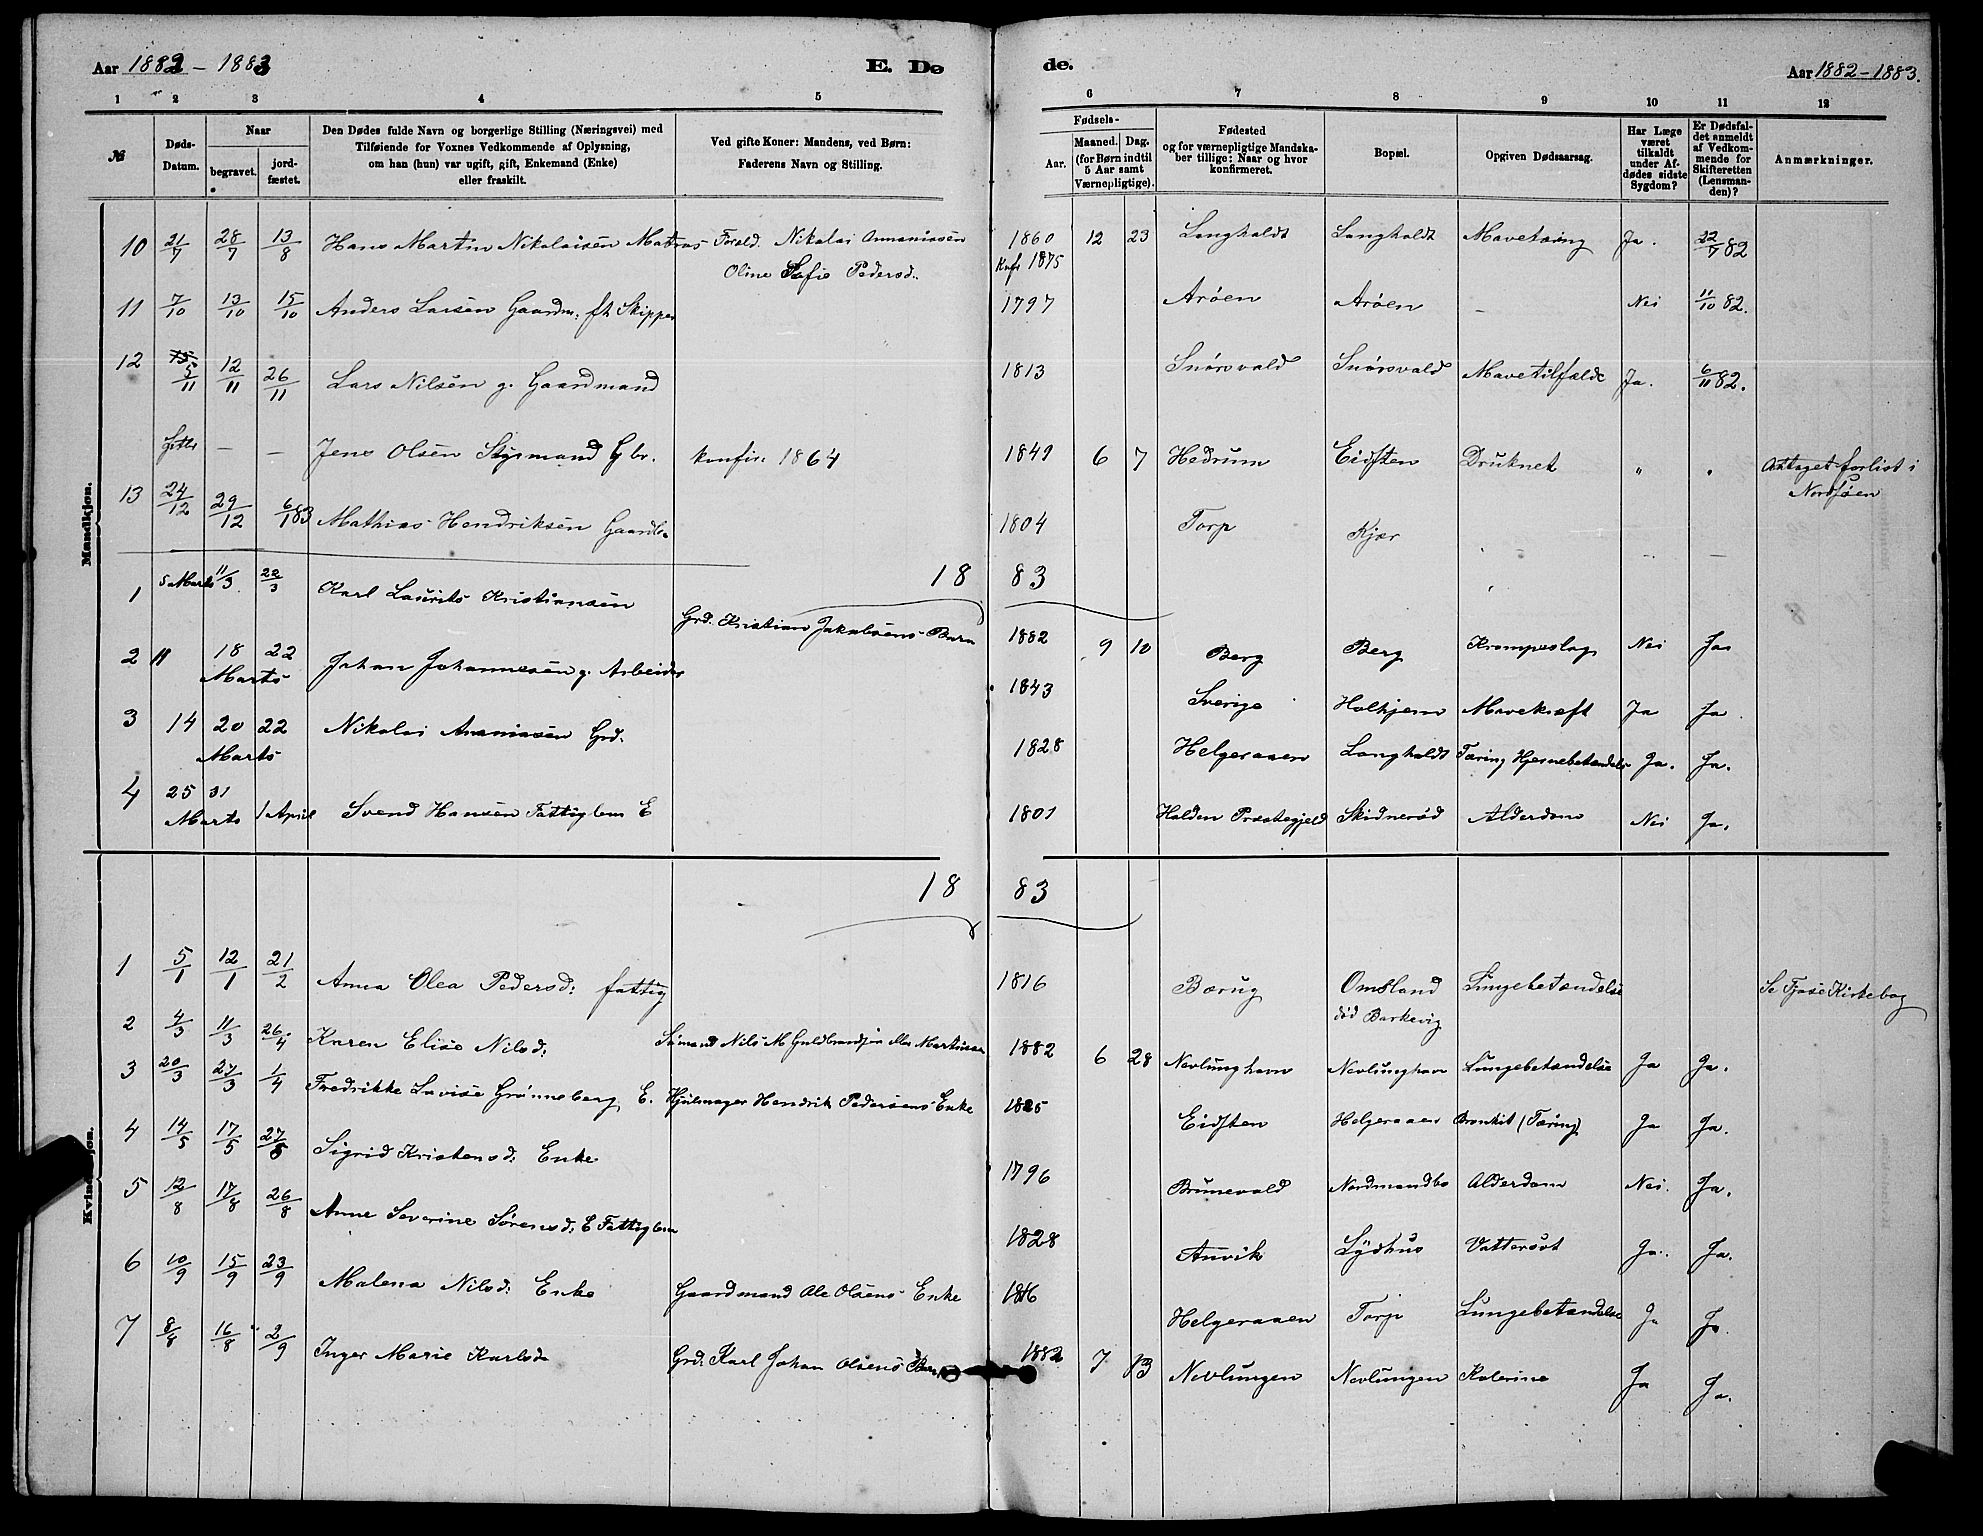 Aar 1882 - 1883 E. Dø de. Aar 1882-1883.
1 2 3 4 5 6 7 8 9 10 11 12
№ Døds-Datum. Naar begravet. jordfæstet. Den Dødes fulde Navn og borgerlige Stilling (Næringsvei) med Tilføiende for Voxnes Vedkommende af Oplysning, om han (hun) var ugift, gift, Enkemand (Enke) eller fraskilt. Ved gifte Koner: Mandens, ved Børn: Faderens Navn og Stilling. Fødsels- Aar. Maaned. Dag. (for Børn indtil 5 Aar samt Værnepligtige). Fødested og for værnepligtige Mandskaber tillige: Naar og hvor konfirmeret. Bopæl. Opgiven Dødsaarsag. Har Læge været tilkaldt under Afdødes sidste Sygdom? Er Dødsfaldet anmeldt af Vedkommende for Skifteretten (Lensmanden)? Anmærkninger.
Mandkjøn.
10 21/7 28/7 13/8 Hans Martin Nikolaisen Matros Foræld. Nikolai Annaniasen 1860 12 23 Langholdt Langholdt Mavetæring Ja. 22/7 82
Oline Sofie Pedersd. Knfr 1875
11 7/10 13/10 15/10 Anders Larsen Gaardm. fh Skipper 1797 Arøen Arøen - Nei 11/10 82.
12 5/11 12/11 26/11 Lars Nilsen g. Gaardmand 1813 Snørsvald Snørsvald Mavetilfælde Ja. 6/11 82.
- - Jens Olsen Styrmand Gbr. konfir. 1864 1849 6 7 Hedrum Eidsten Druknet " " Antaget forlist i
Nordsøen
13 24/12 29/12 6/1 83 Mathias Hendriksen Gaardbr. 1804 Torp Kjær - -
18 83
1 5 Marts 11/3 22/3 Karl Laurits Kristiansen Grd. Kristian Jakobsens Barn 1882 9 10 Berg Berg Krampeslag Nei Ja
2 11 18 22 Marts Johan Johannesen g. Arbeider 1843 Sverige Holhjem Mavekræft Ja Ja
3 14 20 22 Marts Nikolai Ananiasen Grd. 1828 Helgeraaen Langholdt Tæring Hjernebetændelse Ja. Ja.
4 25 31 Marts 1 April Svend Hansen Fattiglem E 1801 Halden Præstegjeld Skidnerød Alderdom Nei Ja.
Kvindekjøn.
18 83
1 5/1 12/1 21/2 Anna Olea Pedersd: fattig 1816 Barug Omsland Lungebetændelse Se Tjose Kirkebog
død Barkevig
2 4/3 11/3 26/4 Karen Elise Nilsd: Sømand Nils M Guldbrandsen eller Martinsen 1882 6 28 Nevlunghavn Nevlunghavn Lungebetændelse Ja Ja.
3 20/3 27/3 1/4 Fredrikke Lovise Grønneberg E. Hjulmager Hendrik Pedersens Enke 1825 Eidsten Helgeraaen Bronkit (Tæring) Ja Ja.
4 14/5 17/5 27/5 Sigrid Kristensd: Enke 1796 Brunevald Nordmandbo Alderdom Nei. Ja.
5 12/8 17/8 26/8 Anne Severine Sørensd: E Fattiglem 1828 Anvik Lydhus Vattersot Ja. Ja.
6 10/9 15/9 23/9 Malena Nilsd: Enke Gaardmand Ole Olsens Enke 1816 Helgeraaen Torp Lungebetændelse Ja Ja.
7 8/8 16/8 2/9 Inger Marie Karlsd Grd. Karl Johan Olsens Barn 1882 7 13 Nevlungen Nevlungen Kolerine Ja Ja.